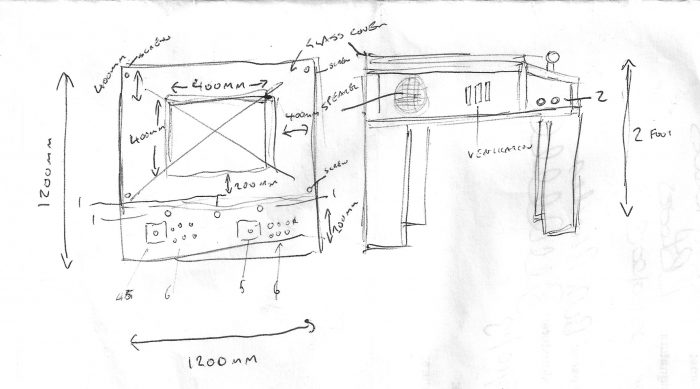 SCREW
GLASS COVER
400MM
SCREW
400MM
SPEAKER
400MM
400MM
2
1200MM
VENTILATION
2 FOOT
SCREW
200MM
1
1
1
200MM
6
5
6
1200MM